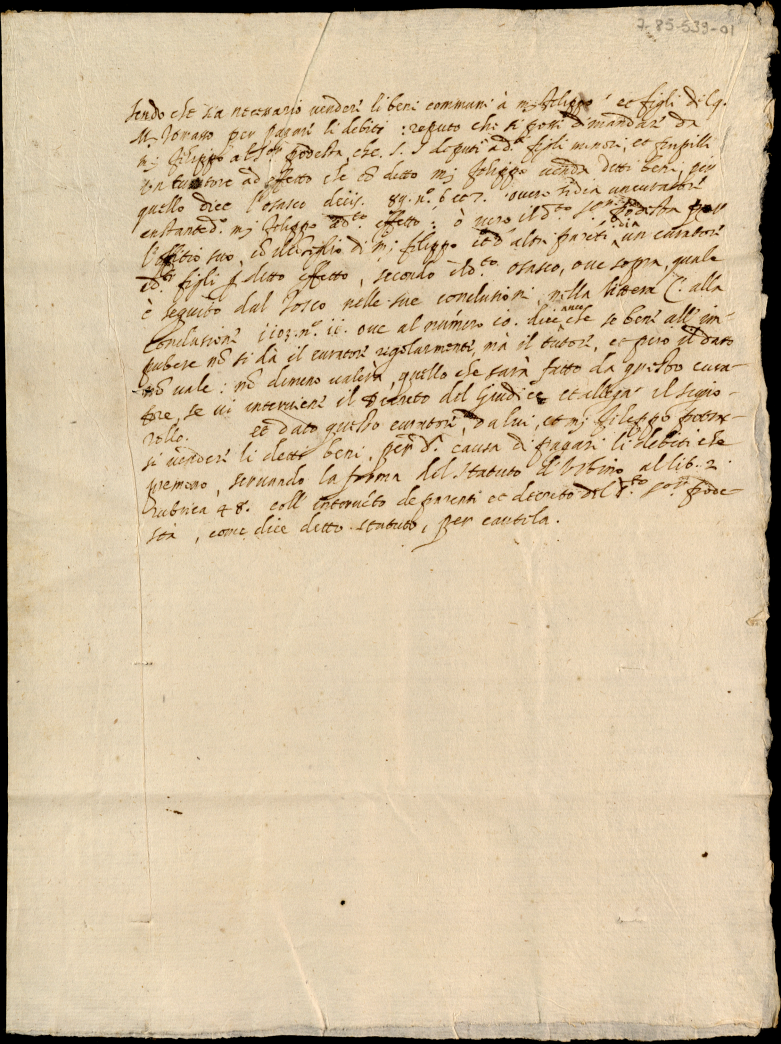 7-85-539-01
sendo che sia necessario vender li beni communi à mj filippo et figli di q.
M. per pagar li debiti : reputo che si possi dimandar da
mj filippo al sor podesta, che s. s. deputi a d. figli minori, et pupilli
un curatore ad effetto che cō detto mj filippo venda detti beni, per
quello dice l'osasco decis. 89. n.º 6 et 7. overo si dia un curator
enstante d. mj filippo ad.to effetto : ò vero il d.to sor podesta per
l'offitio suo, cō di mj filippo et d'altri parēti dia un curator
à d.ti figli p detto effetto, secondo il d.to osasco, ove sopra, quale
è seguito dal Tosco nelle sue conclusioni nella littera C: alla
Conclusione 1103. n.º 11. ove al numero 10. dice anco che se bene all'im-
pubere nō si dà il curator regolarmente, mà il tutor, et però il dato
nō vale : nō dimeno valerà, quello che sarà fatto da questo cura-
tore, se vi interviene il Decreto del Giudice et allega il signo-
rollo. et dato questo curator, da lui, et mj filippo potra-
si vender li detti beni, per d.a causa di pagar li debiti che
premono, servando la forma del statuto d'Urbino al lib. 2.
Rubrica 48. coll' intervēto de parenti et decreto del d.to sor pode-
stà, come dice detto statuto, per cautela.